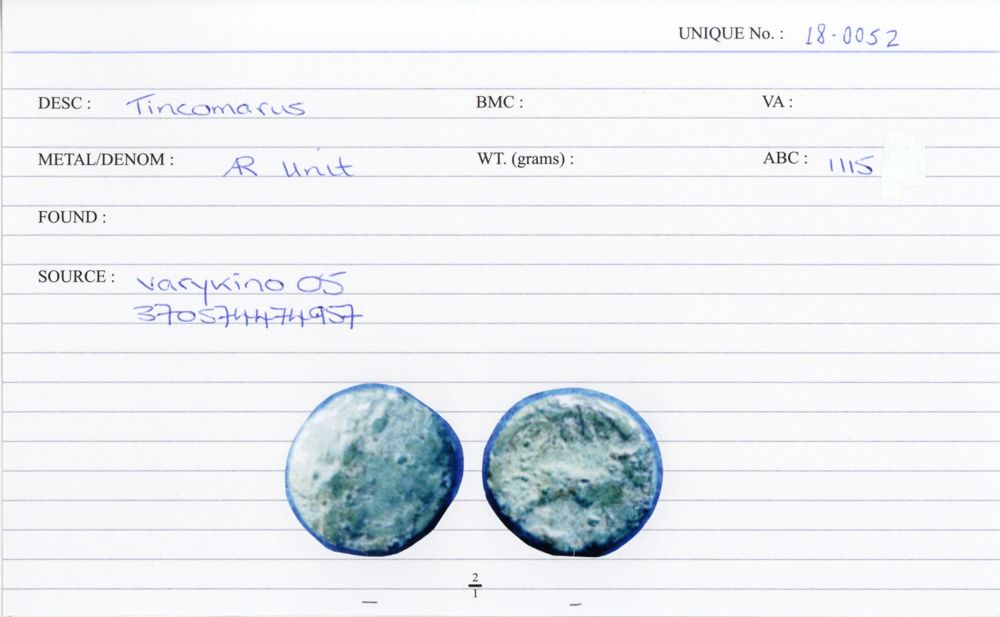 UNIQUE No. : 18-0052
DESC : Tincomarus BMC : VA :
METAL/DENOM : AR Unit WT. (grams) : ABC : 1115
FOUND :
SOURCE : varykino 05
370574474957
2
1